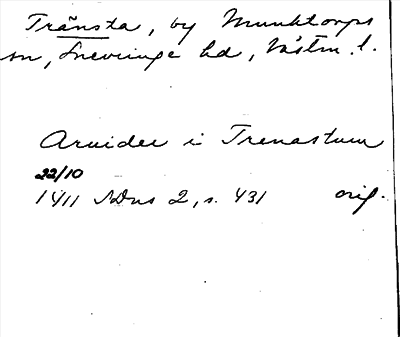 Tränsta, by Munktorps
sn, Snevringe hd, Västm. l.
Arvidee i Trenastum
22/10
1411 SDns 2, s. 431 orig.